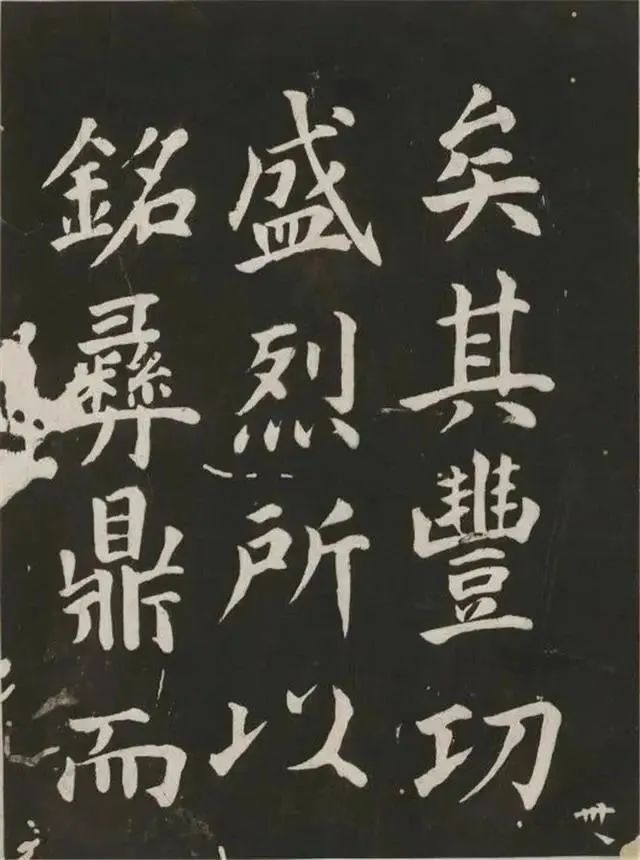 矣其豐功
盛烈所以
銘彝鼎而